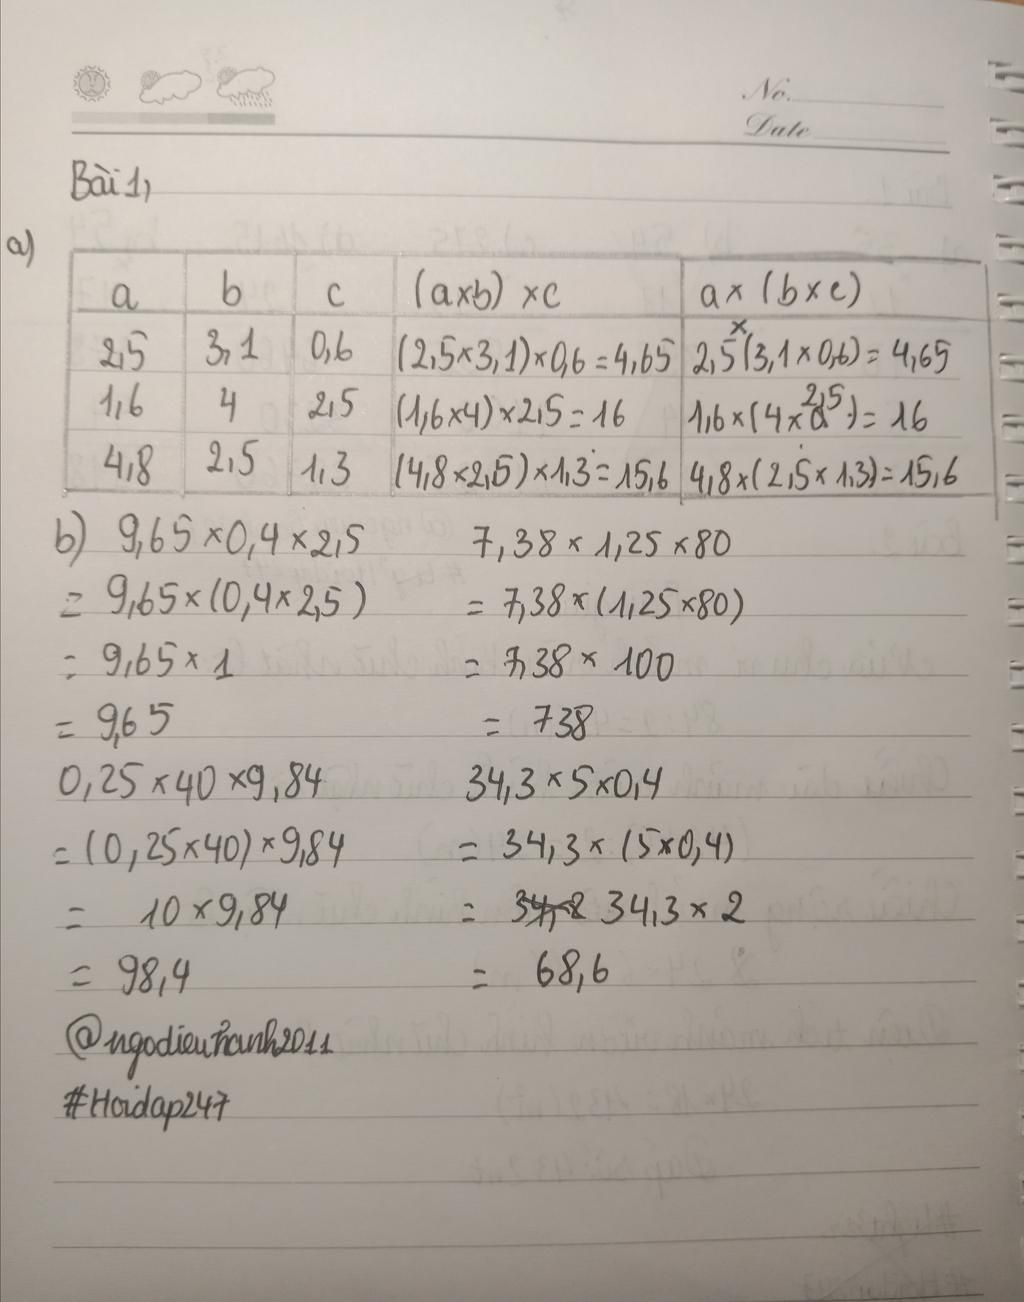 No.
Date
Bài 1,
a)
a b c (a×b) ×c a× (b×c)
2,5 3,1 0,6 (2,5×3,1)×0,6=4,65 2,5×(3,1×0,6)=4,65
1,6 4 2,5 (1,6×4)×2,5=16 1,6×(4×2,5)=16
4,8 2,5 1,3 (4,8×2,5)×1,3=15,6 4,8×(2,5×1,3)=15,6
b) 9,65×0,4×2,5 7,38×1,25×80
= 9,65×(0,4×2,5) = 7,38×(1,25×80)
= 9,65×1 = 7,38×100
= 9,65 = 738
0,25×40×9,84 34,3×5×0,4
=(0,25×40)×9,84 = 34,3×(5×0,4)
= 10×9,84 = 34,3×2
= 98,4 = 68,6
@ngodieuhanh2011
#Hoidap247